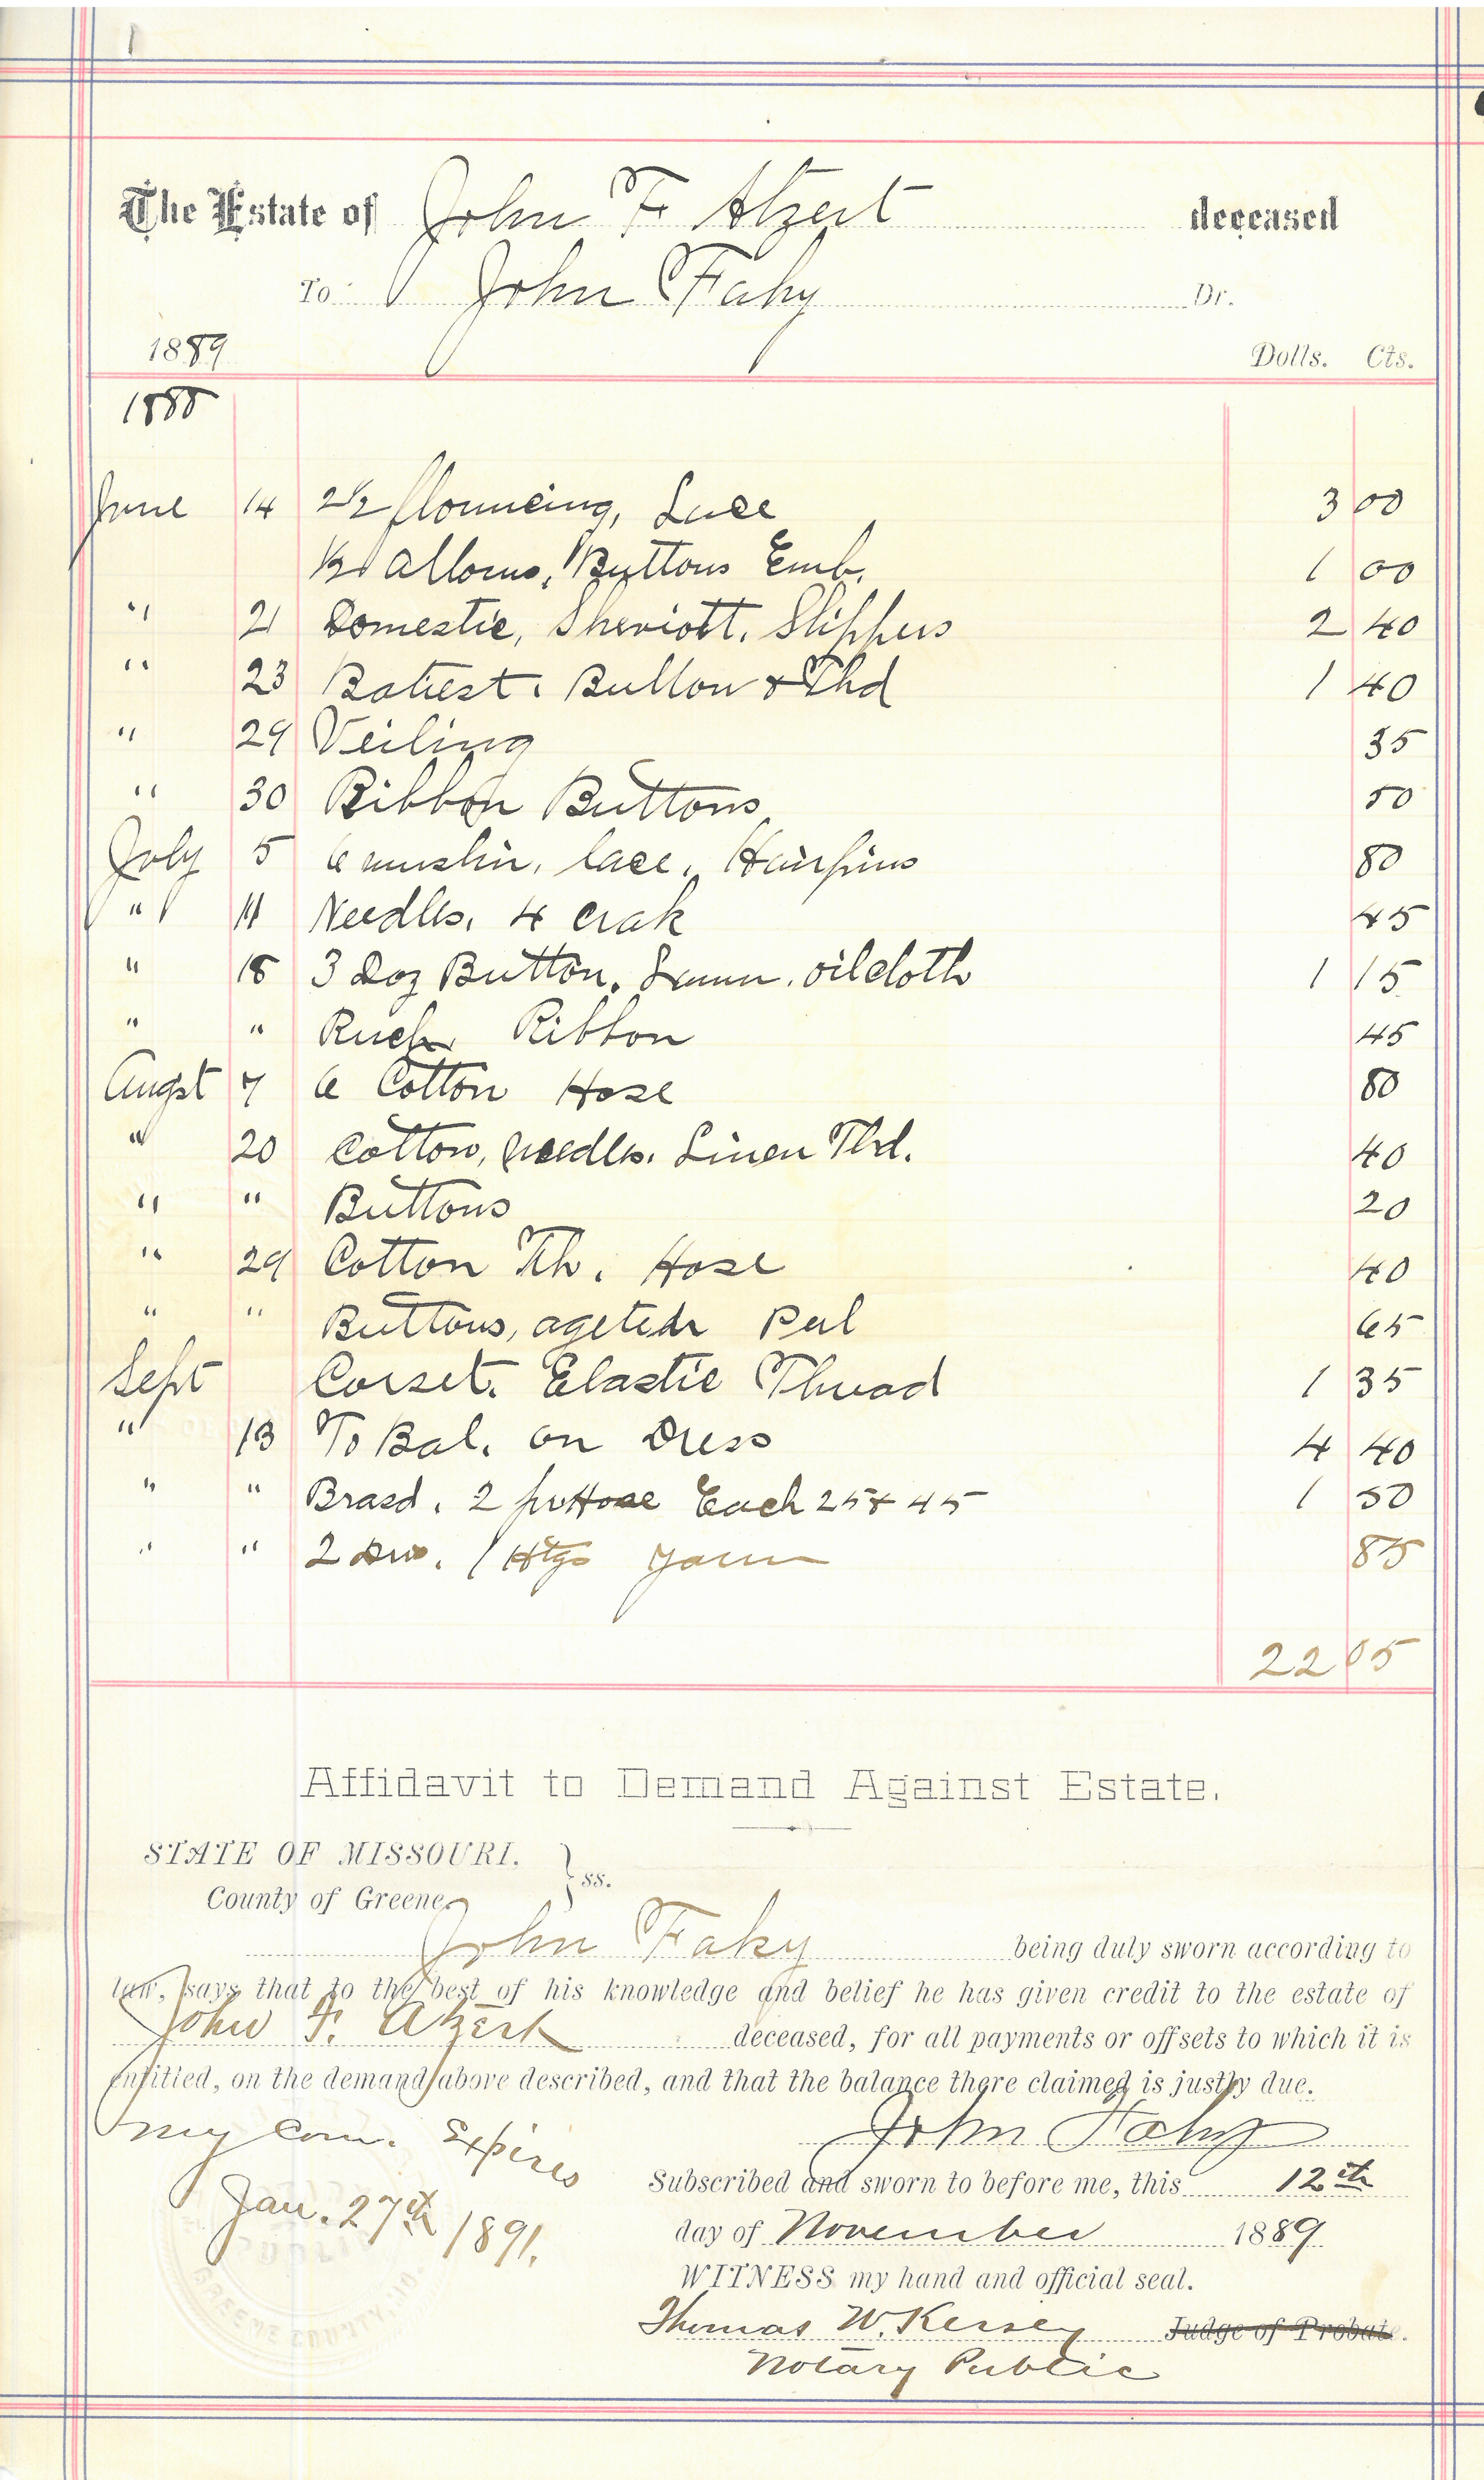 The Estate of John F Atzert deceased
To John Fahy Dr.
1889 Dolls. Cts.
1888
June 14 2 1/2 flouncing, Lace 3 00
1/2 Buttons Emb. 1 00
" 21 Domestic, Sheviott. Slippers 2 40
" 23 Batiest. Button & Thd 1 40
" 29 Veiling 35
" 30 Ribbon Buttons 50
July 5 6 muslin, lace, Hairpins 80
" 11 Needles, 4 crak 45
" 18 3 Doz Button, oilcloth 1 15
" " Ruch Ribbon 45
Augst 7 6 Cotton Hose 80
" 20 Cotton, needles. Linen Thd. 40
" " Buttons 20
" 29 Cotton Th. Hose 40
" " Buttons, Perl 65
Sept Corset. Elastic Thread 1 35
" 13 To Bal. on Dress 4 40
" " Braid. 2 pr Hose Each 25 & 45 1 50
" " 2 1 85
22 05
Affidavit to Demand Against Estate.
STATE OF MISSOURI.
County of Greene } ss.
John Fahy being duly sworn according to
law, says that to the best of his knowledge and belief he has given credit to the estate of
John F. Atzert deceased, for all payments or offsets to which it is
entitled, on the demand above described, and that the balance there claimed is justly due.
John Fahy
My Com. Expires
Jan. 27th 1891.
Subscribed and sworn to before me, this 12th
day of November 1889
WITNESS my hand and official seal.
Thomas W. Kersey Judge of Probate.
Notary Public
GREENE COUNTY